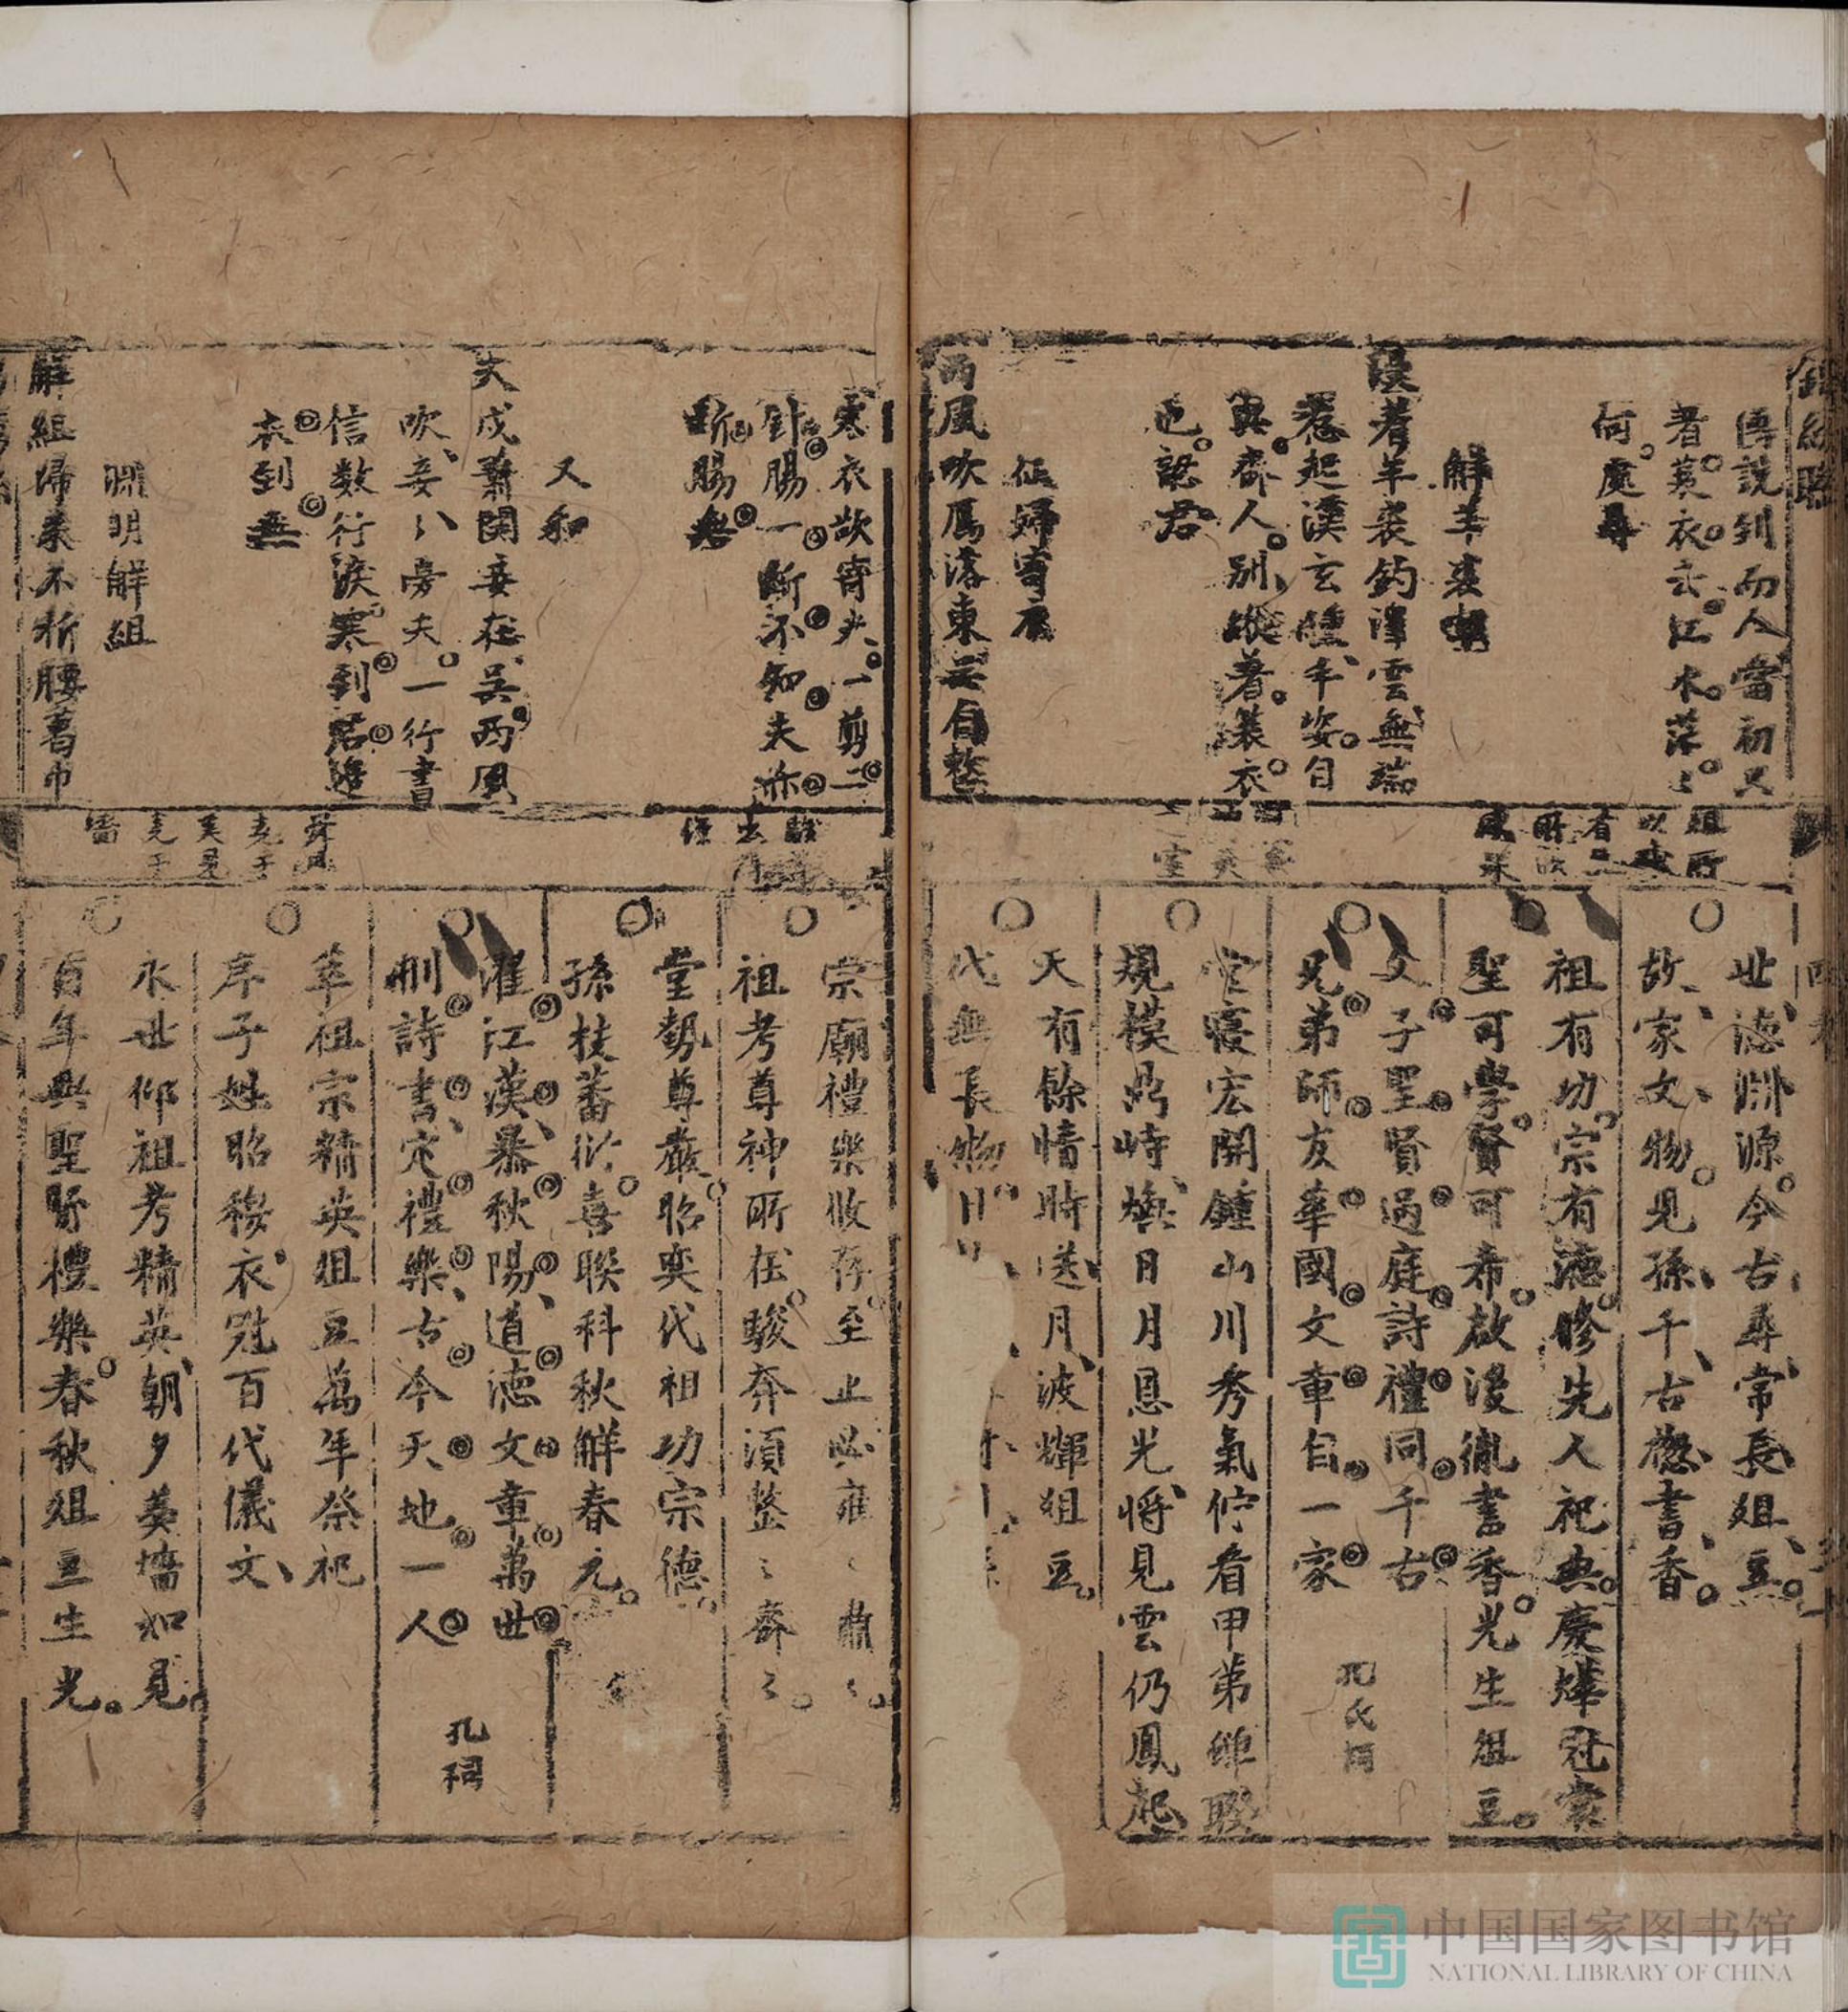 傳說到而人當初只
著蓑衣去江水茫〻
何處尋
解羊裘嘲
漫著羊裘釣澤雲無端
惹起漢玄纁年姿自
與齊人別縱著蓑衣
也認君
征婦寄衣
西風吹馬落東吳自整
寒衣欲寄夫一剪二
針腸一斷不知夫亦
斷腸無
又和
夫戍蕭關妾在吳西風
吹妾〻旁夫一行書
信数行淚寒到君邊
衣到無
淵明解組
解組歸來不折腰著巾
世德淵源今古尋常長俎豆
故家文物見孫千古襲書香
祖有功宗有德滕先人祀典慶燁冠裳
聖可學賢可希啟後胤書香光生俎豆
父子聖賢過庭詩禮同千古
兄弟師友華國文章自一家
孔氏祠
堂寢宏開鍾山川秀氣佇看甲第蟬聯
規模昂峙煥日月恩光將見雲仍鳳起
天有餘情時送月波輝俎豆
代無長物日
宗廟禮樂攸存至止必雍〻肅〻
祖考尊神所在駿奔須整〻齊〻
堂勢尊嚴昭奕代祖功宗德
孫枝蕃衍喜聯科秋解春元
濯江漢暴秋陽道德文章萬世
刪詩書定禮樂古今天地一人
孔祠
萃祖宗精英俎豆萬年祭祀
序子姓昭穆衣冠百代儀文
永世仰祖考精英朝夕羹墻如見
百年興聖賢禮樂春秋俎豆生光
中国国家图书馆
NATIONAL LIBRARY OF CHINA